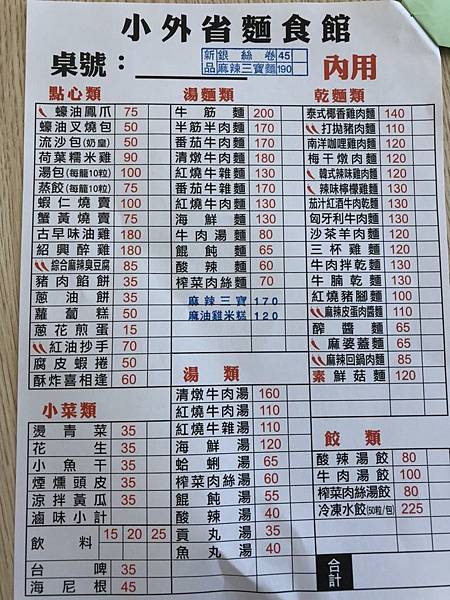 小外省麵食館
新品 銀絲卷 45
麻辣三寶麵 190
桌號：
內用
點心類
蠔油鳳爪 75
蠔油叉燒包 50
流沙包(奶皇) 50
荷葉糯米雞 90
湯包(每籠10粒) 100
蒸餃(每籠10粒) 75
蝦仁燒賣 100
蟹黃燒賣 75
古早味油雞 180
紹興醉雞 180
綜合麻辣臭豆腐 85
豬肉餡餅 35
蔥油餅 30
蘿蔔糕 50
蔥花煎蛋 15
紅油抄手 70
腐皮蝦捲 50
酥炸喜相逢 60
小菜類
燙青菜 35
花生 35
小魚干 35
煙燻頭皮 35
涼拌黃瓜 35
滷味小計
飲料 15 20 25
台啤 35
海尼根 45
湯麵類
牛筋麵 200
半筋半肉麵 170
番茄牛肉麵 170
清燉牛肉麵 180
紅燒牛雜麵 130
番茄牛雜麵 170
紅燒牛肉麵 130
海鮮麵 130
牛肉湯麵 80
餛飩麵 65
酸辣麵 60
榨菜肉絲麵 70
麻辣三寶 170
麻油雞米糕 120
湯類
清燉牛肉湯 160
紅燒牛肉湯 110
紅燒牛雜湯 110
海鮮湯 120
蛤蜊湯 65
榨菜肉絲湯 60
餛飩湯 55
酸辣湯 40
貢丸湯 35
魚丸湯 40
乾麵類
泰式椰香雞肉麵 140
打拋豬肉麵 110
南洋咖哩雞肉麵 120
梅干燉肉麵 120
韓式辣味雞肉麵 120
辣味檸檬雞麵 130
茄汁紅酒牛肉乾麵 130
匈牙利牛肉麵 130
沙茶羊肉麵 120
三杯雞麵 120
牛肉拌乾麵 130
牛腩乾麵 130
紅燒豬腳麵 100
麻辣皮蛋肉醬麵 110
醡醬麵 65
麻婆蓋麵 65
麻辣回鍋肉麵 85
素 鮮菇麵 120
餃類
酸辣湯餃 80
牛肉湯餃 100
榨菜肉絲湯餃 80
冷凍水餃(50粒/包) 225
合計